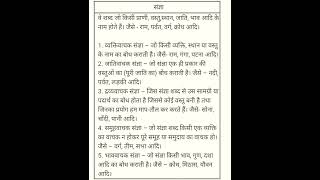 संज्ञा
वे शब्द जो किसी प्राणी, वस्तु,स्थान, जाति, भाव आदि के
नाम होते हैं। जैसे - राम, पर्वत, वर्ग, क्रोध आदि।
1. व्यक्तिवाचक संज्ञा – जो किसी व्यक्ति, स्थान या वस्तु
के नाम का बोध कराती है। जैसे- राम, गंगा, पटना आदि।
2. जातिवाचक संज्ञा – जो संज्ञा एक ही प्रकार की
वस्तुओं का (पूरी जाति का) बोध कराती है। जैसे – नदी,
पर्वत, लड़की आदि।
3. द्रव्यवाचक संज्ञा – जिस संज्ञा शब्द से उस सामग्री या
पदार्थ का बोध होता है जिससे कोई वस्तु बनी है तथा
जिनका प्रयोग हम माप-तौल कर करते हैं। जैसे- सोना,
चाँदी, पानी आदि।
4. समूहवाचक संज्ञा – जो संज्ञा शब्द किसी एक व्यक्ति
का वाचक न होकर पूरे समूह या समुदाय का वाचक हो।
जैसे – वर्ग, टीम, सभा आदि।
5. भाववाचक संज्ञा – जो संज्ञा किसी भाव, गुण, दशा
आदि का बोध कराती है। जैसे – क्रोध, मिठास, यौवन
आदि।